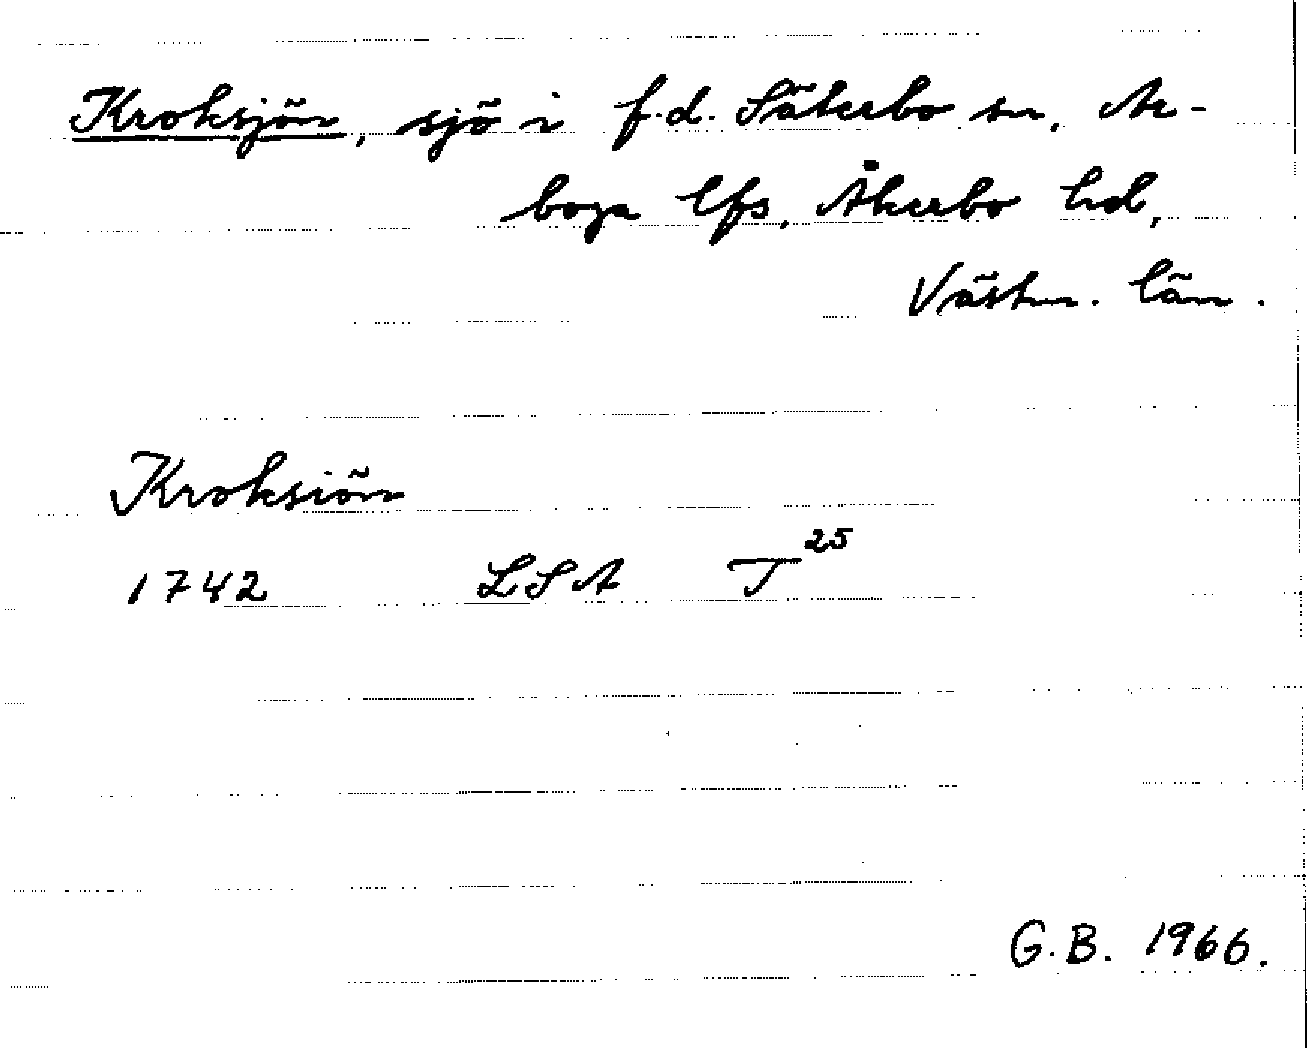 Kroksjön, sjö i f.d. Säterbo sn, Ar-
boga lfs, Åkerbo hd,
Västm. län.
Kroksiön
1742 LSA T25
G.B. 1966.